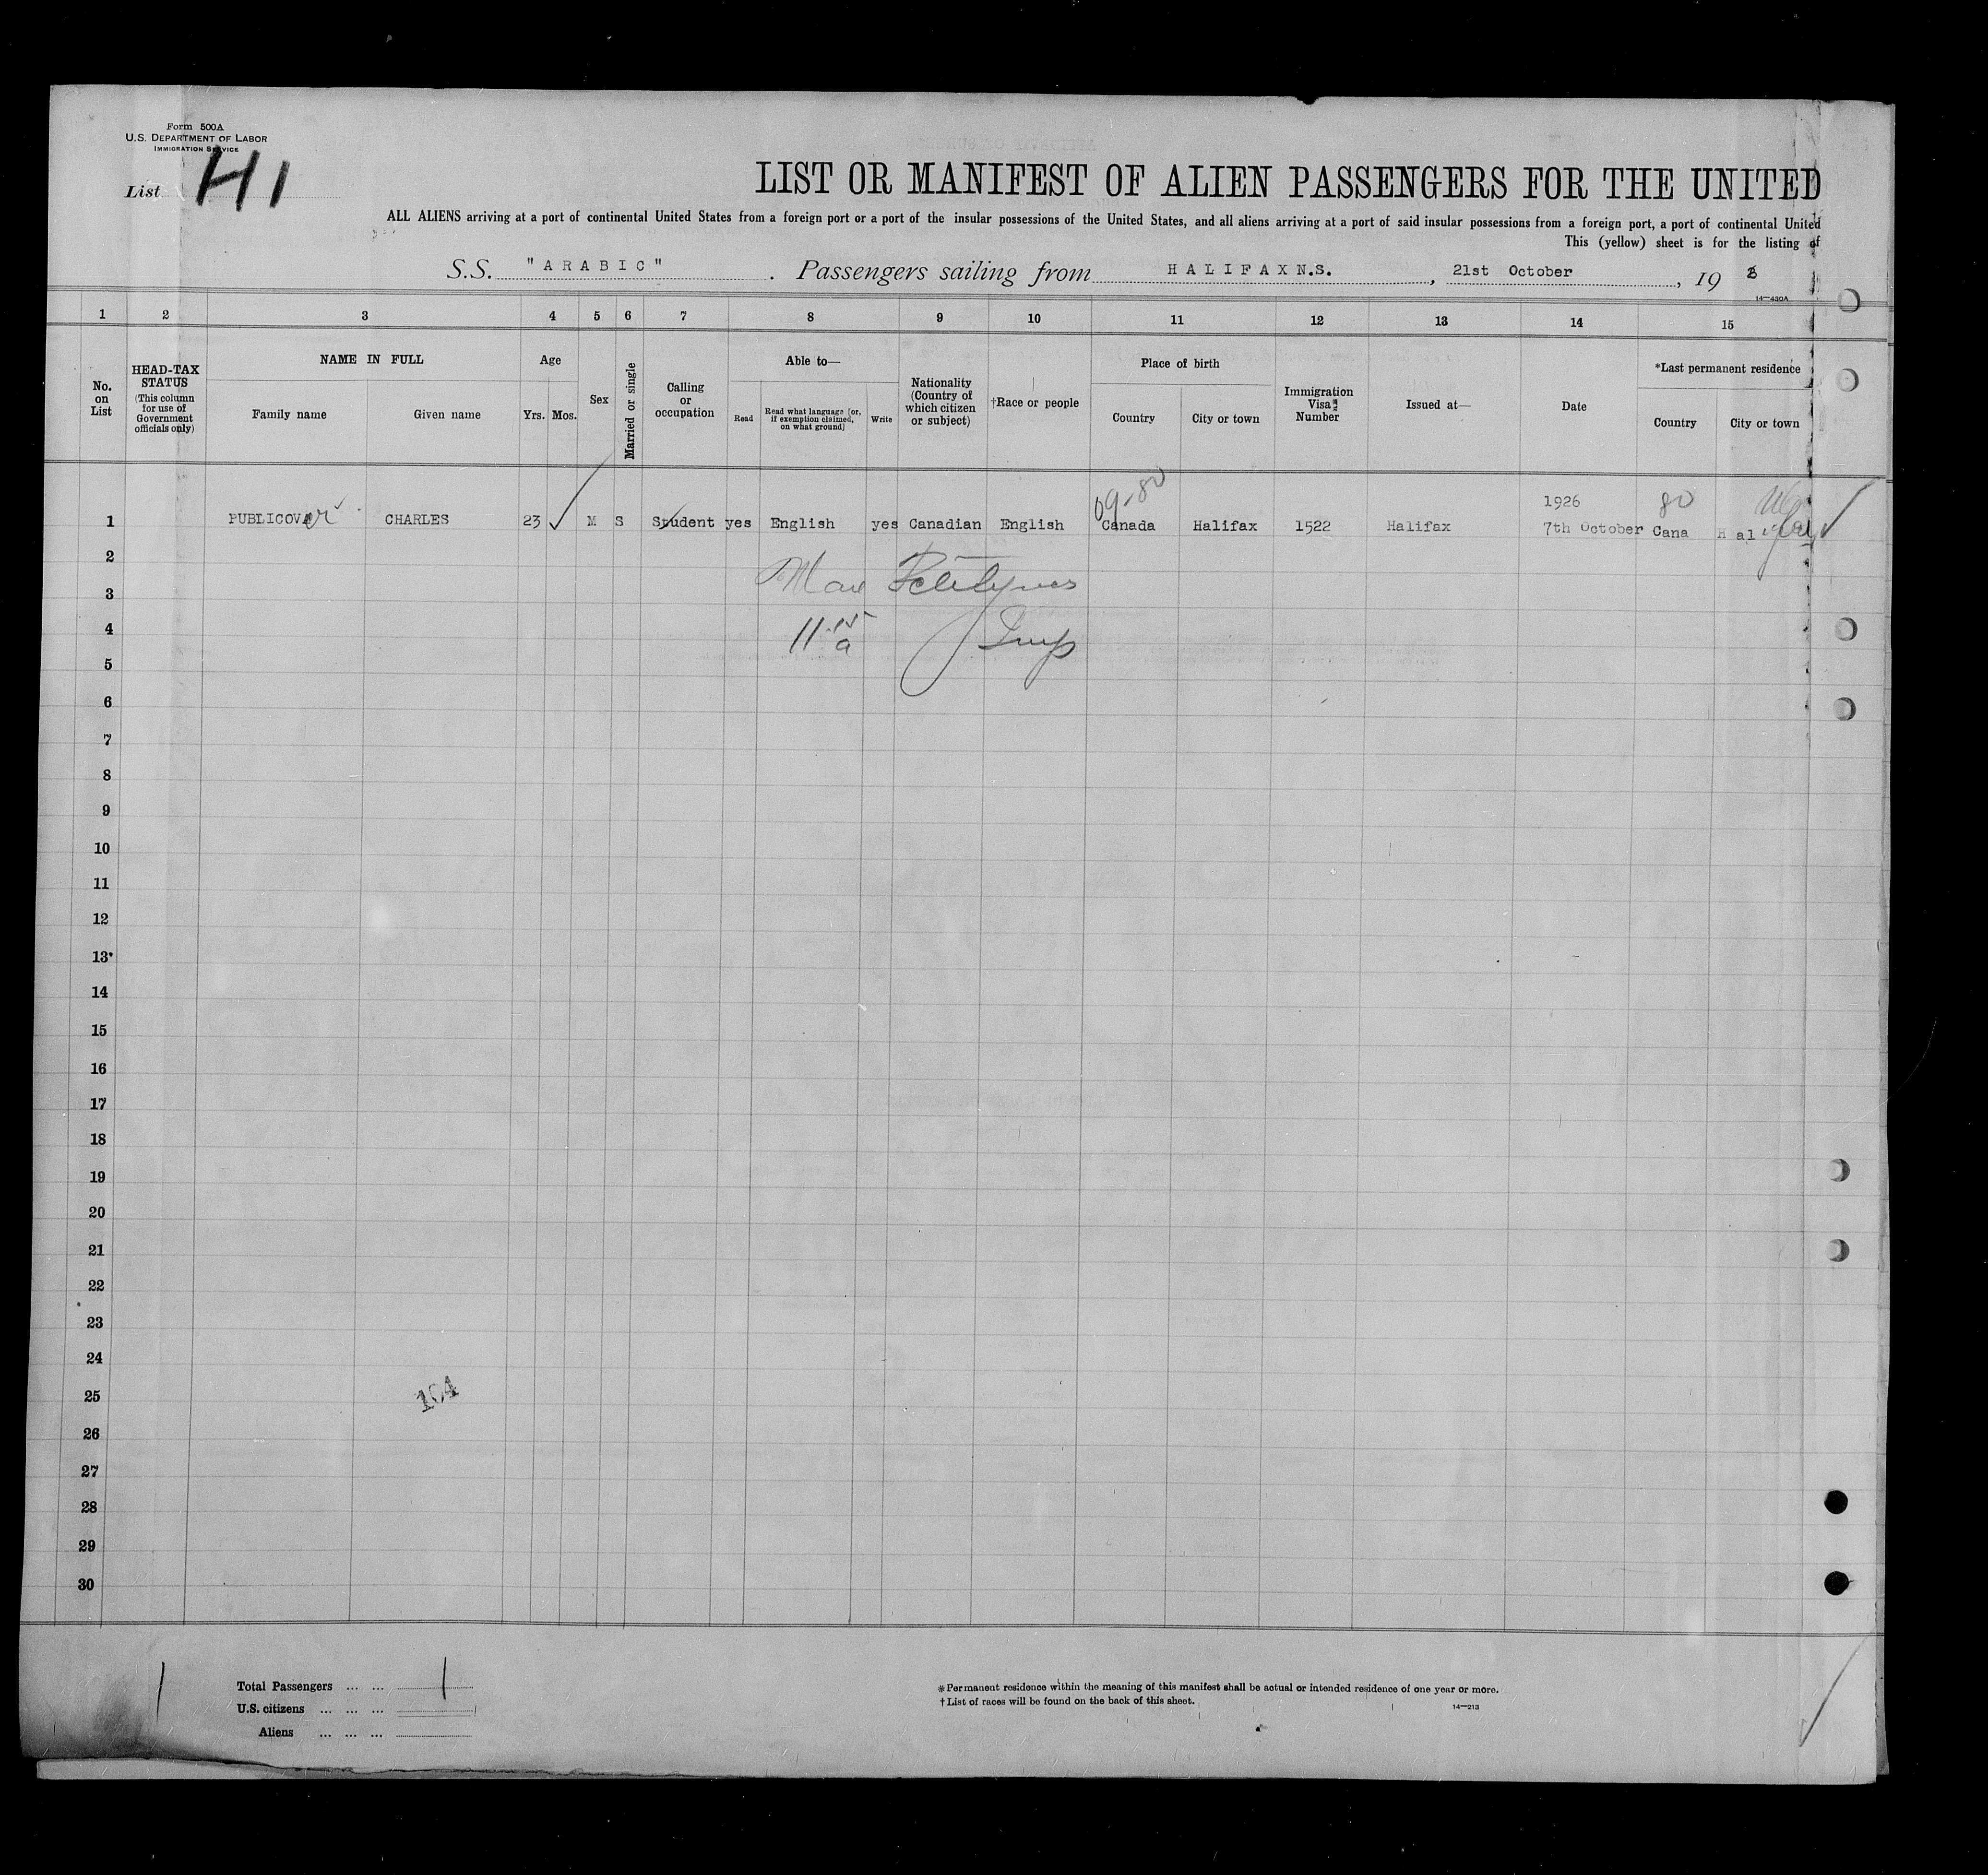 Form 500A
U.S. DEPARTMENT OF LABOR
IMMIGRATION SERVICE
List H1
LIST OR MANIFEST OF ALIEN PASSENGERS FOR THE UNITED
ALL ALIENS arriving at a port of continental United States from a foreign port or a port of the insular possessions of the United States, and all aliens arriving at a port of said insular possessions from a foreign port, a port of continental United
This (yellow) sheet is for the listing of
S.S. "ARABIC". Passengers sailing from HALIFAX N.S., 21st October, 19
14—430A
1 2 3 4 5 6 7 8 9 10 11 12 13 14 15
No. on List
HEAD-TAX STATUS
(This column for use of Government officials only)
NAME IN FULL
Family name Given name
Age
Yrs. Mos.
Sex
Married or single
Calling or occupation
Able to—
Read
Read what language [or, if exemption claimed, on what ground]
Write
Nationality (Country of which citizen or subject)
†Race or people
Place of birth
Country City or town
Immigration Visa Number
Issued at—
Date
*Last permanent residence
Country City or town
09-80
1926 80
1 PUBLICOVER CHARLES 23 M S Student yes English yes Canadian English Canada Halifax 1522 Halifax 7th October Cana Hal
2
3
4
5
6
7
8
9
10
11
12
13
14
15
16
17
18
19
20
21
22
23
24
25
26
27
28
29
30
104
Total Passengers ... ... 1
U.S. citizens ... ... ...
Aliens ... ... ...
*Permanent residence within the meaning of this manifest shall be actual or intended residence of one year or more.
†List of races will be found on the back of this sheet.
14—213